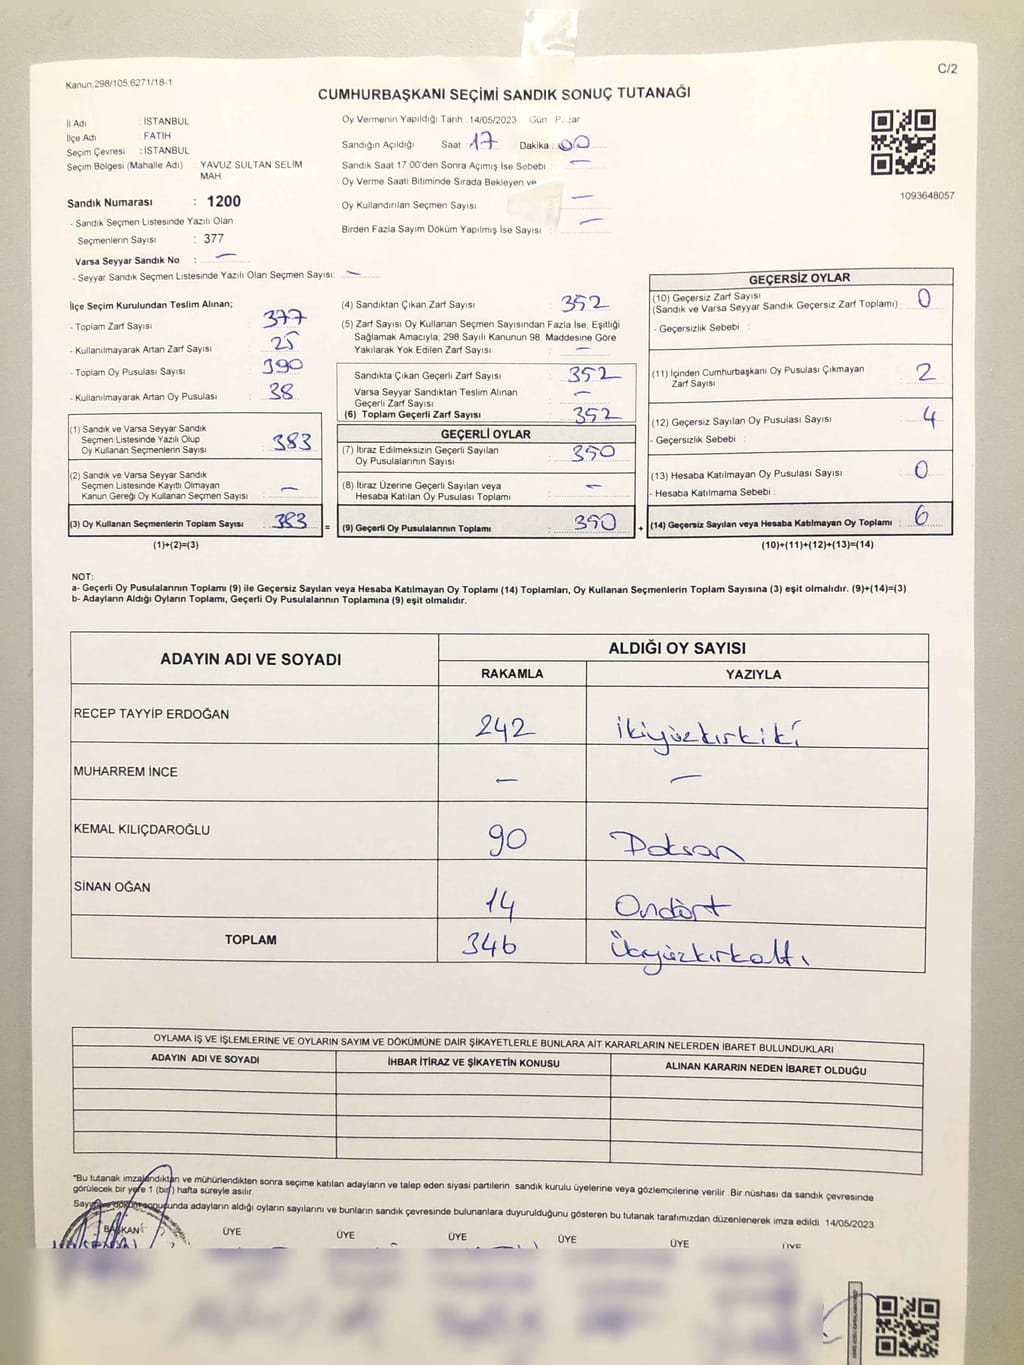 Kanun:298/105,6271/18-1
C/2
CUMHURBAŞKANI SEÇİMİ SANDIK SONUÇ TUTANAĞI
İl Adı : İSTANBUL
İlçe Adı : FATİH
Seçim Çevresi : İSTANBUL
Seçim Bölgesi (Mahalle Adı) YAVUZ SULTAN SELİM
MAH.
Sandık Numarası : 1200
- Sandık Seçmen Listesinde Yazılı Olan
Seçmenlerin Sayısı : 377
Varsa Seyyar Sandık No : —
- Seyyar Sandık Seçmen Listesinde Yazılı Olan Seçmen Sayısı: —
Oy Vermenin Yapıldığı Tarih : 14/05/2023 Gün
Sandığın Açıldığı Saat 17 Dakika : 00
Sandık Saat 17.00'den Sonra Açımış İse Sebebi : —
Oy Verme Saati Bitiminde Sırada Bekleyen ve
Oy Kullandırılan Seçmen Sayısı —
Birden Fazla Sayım Döküm Yapılmış İse Sayısı —
1093648057
İlçe Seçim Kurulundan Teslim Alınan;
- Toplam Zarf Sayısı : 377
- Kullanılmayarak Artan Zarf Sayısı : 25
- Toplam Oy Pusulası Sayısı : 390
- Kullanılmayarak Artan Oy Pusulası : 38
(1) Sandık ve Varsa Seyyar Sandık
Seçmen Listesinde Yazılı Olup
Oy Kullanan Seçmenlerin Sayısı : 383
(2) Sandık ve Varsa Seyyar Sandık
Seçmen Listesinde Kayıtlı Olmayan
Kanun Gereği Oy Kullanan Seçmen Sayısı : —
(3) Oy Kullanan Seçmenlerin Toplam Sayısı : 383
(1)+(2)=(3)
(4) Sandıktan Çıkan Zarf Sayısı : 352
(5) Zarf Sayısı Oy Kullanan Seçmen Sayısından Fazla İse, Eşitliği
Sağlamak Amacıyla; 298 Sayılı Kanunun 98. Maddesine Göre
Yakılarak Yok Edilen Zarf Sayısı : —
Sandıkta Çıkan Geçerli Zarf Sayısı : 352
Varsa Seyyar Sandıktan Teslim Alınan
Geçerli Zarf Sayısı : —
(6) Toplam Geçerli Zarf Sayısı : 352
GEÇERLİ OYLAR
(7) İtiraz Edilmeksizin Geçerli Sayılan
Oy Pusulalarının Sayısı : 350
(8) İtiraz Üzerine Geçerli Sayılan veya
Hesaba Katılan Oy Pusulası Toplamı : —
= (9) Geçerli Oy Pusulalarının Toplamı : 350 +
GEÇERSİZ OYLAR
(10) Geçersiz Zarf Sayısı
(Sandık ve Varsa Seyyar Sandık Geçersiz Zarf Toplamı) : 0
- Geçersizlik Sebebi :
(11) İçinden Cumhurbaşkanı Oy Pusulası Çıkmayan
Zarf Sayısı : 2
(12) Geçersiz Sayılan Oy Pusulası Sayısı : 4
- Geçersizlik Sebebi :
(13) Hesaba Katılmayan Oy Pusulası Sayısı : 0
- Hesaba Katılmama Sebebi :
(14) Geçersiz Sayılan veya Hesaba Katılmayan Oy Toplamı : 6
(10)+(11)+(12)+(13)=(14)
NOT:
a- Geçerli Oy Pusulalarının Toplamı (9) ile Geçersiz Sayılan veya Hesaba Katılmayan Oy Toplamı (14) Toplamları, Oy Kullanan Seçmenlerin Toplam Sayısına (3) eşit olmalıdır. (9)+(14)=(3)
b- Adayların Aldığı Oyların Toplamı, Geçerli Oy Pusulalarının Toplamına (9) eşit olmalıdır.
ADAYIN ADI VE SOYADI ALDIĞI OY SAYISI
RAKAMLA YAZIYLA
RECEP TAYYİP ERDOĞAN 242 İkiyüzkırkiki
MUHARREM İNCE — —
KEMAL KILIÇDAROĞLU 90 Doksan
SİNAN OĞAN 14 Ondört
TOPLAM 346 Üçyüzkırkaltı
OYLAMA İŞ VE İŞLEMLERİNE VE OYLARIN SAYIM VE DÖKÜMÜNE DAİR ŞİKAYETLERLE BUNLARA AİT KARARLARIN NELERDEN İBARET BULUNDUKLARI
ADAYIN ADI VE SOYADI İHBAR İTİRAZ VE ŞİKAYETİN KONUSU ALINAN KARARIN NEDEN İBARET OLDUĞU
*Bu tutanak imzalandıktan ve mühürlendikten sonra seçime katılan adayların ve talep eden siyasi partilerin sandık kurulu üyelerine veya gözlemcilerine verilir. Bir nüshası da sandık çevresinde
görülecek bir yere 1 (bir) hafta süreyle asılır.
Sayım ve döküm sonucunda adayların aldığı oyların sayılarını ve bunların sandık çevresinde bulunanlara duyurulduğunu gösteren bu tutanak tarafımızdan düzenlenerek imza edildi. 14/05/2023
BAŞKAN ÜYE ÜYE ÜYE ÜYE ÜYE ÜYE